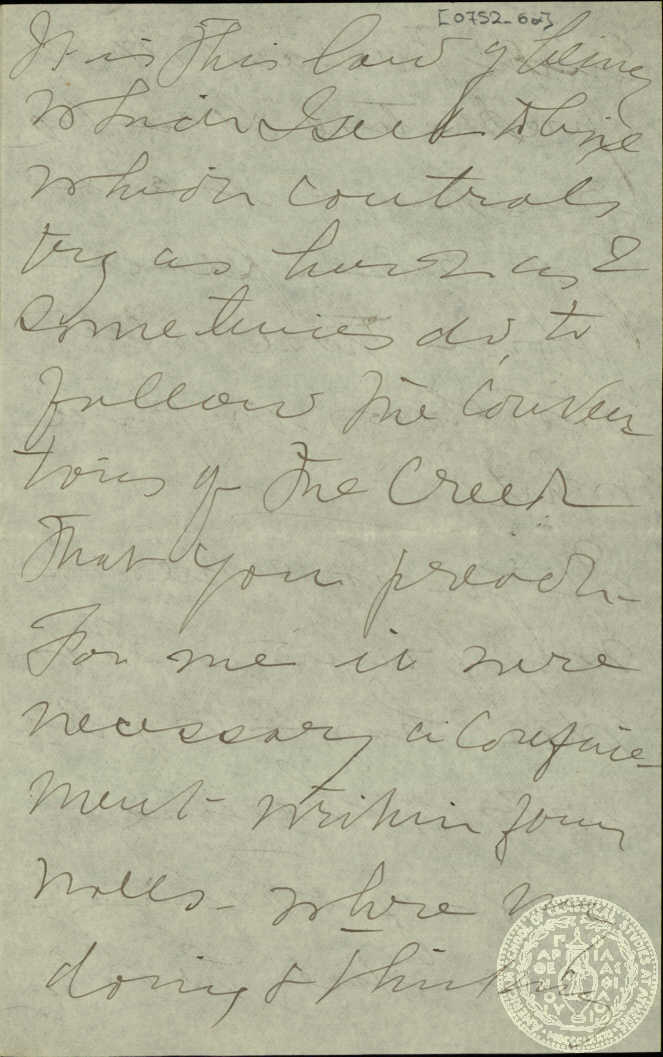 [0752_60]
It is this law of being
which I seek to live
which controls
try as hard as I
sometimes do, to
follow the conven
tions of the Creed
That you preach -
For me it were
necessary a confine-
ment within four
walls - where
doing & thinking